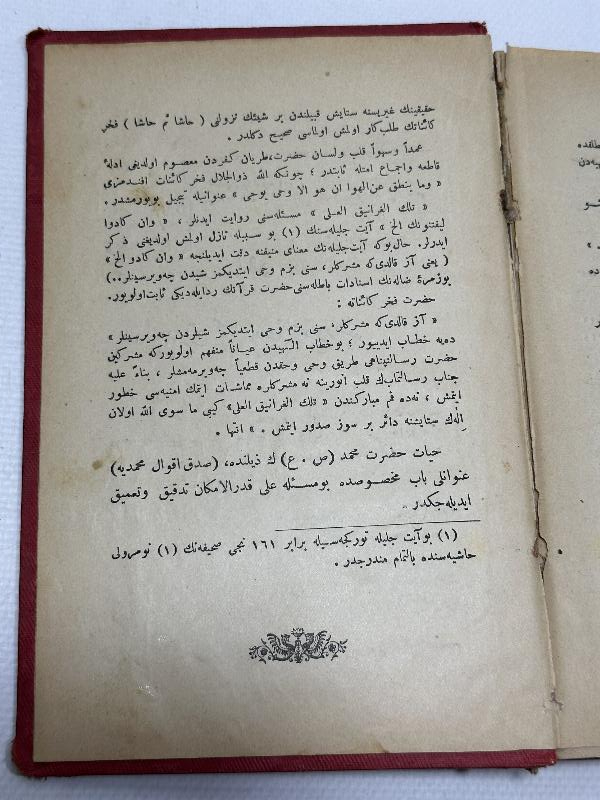 حقيقينك غيريسنه ستايش قبيلندن بر شيئك نزولى ( حاشا ثم حاشا ) فخر
كائناتك طلبكار اولمش اولماسى صحيح دكلدر .
عمداً وسهواً قلب ولسان حضرت، طريان كفردن معصوم اولديغى ادلهٔ
قاطعه واجماع امتله ثابتدر ؛ چونكه الله ذوالجلال فخر كائنات افندمزى
« وما ينطق عن الهوا ان هو الا وحى يوحى » عنوانيله تبجيل بويورمشدر .
« تلك الغرانيق العلى » مسئله‌سنى روايت ايدنلر ، « وان كادوا
ليفتنونك الخ » آيت جليله‌سنك (١) بو سببله نازل اولمش اولديغنى ذكر
ايدرلر . حال بوكه آيت جليله‌نك معناى منيفنه دقت ايديلنجه « وان كادو الخ »
( يعنى آز قالدى‌كه مشركلر ، سنى بزم وحى ايتديكمز شيدن چه‌ويرسينلر..)
بوزمرهٔ ضاله‌نك اسنادات باطله‌سنى حضرت قرآنك ردايله‌ديكى ثابت‌اوليور.
حضرت فخر كائناته :
« آز قالدى‌كه مشركلر ، سنى بزم وحى ايتديكمز شيلردن چه‌ويرسينلر »
ده‌يه خطاب ايدييور ؛ بوخطاب الٓهيدن عياناً منفهم اوليوركه مشركين
حضرت رسالتپناهى طريق وحى وحقدن قطعياً چه‌ويرمه‌مشلر ، بناءً عليه
جناب رسالتمابك قلب انورينه نه مشركلره مماشات ايتمك امنيه‌سى خطور
ايتمش ، نه‌ده فم مباركندن « تلك الغرانيق العلى » كبى ما سوى الله اولان
الٓهك ستايشنه دائر بر سوز صدور ايتمش . » انتها .
حيات حضرت محمد (ص . ع) ك ذيلنده ، (صدق اقوال محمديه)
عنوانلى باب مخصوصده بومسئله على قدرالامكان تدقيق وتعميق
ايديله‌جكدر .
(١) بوآيت جليله توركجه‌سيله برابر ١٦١ نجى صحيفه‌نك (١) نومرولى
حاشيه‌سنده بالتمام مندرجدر .